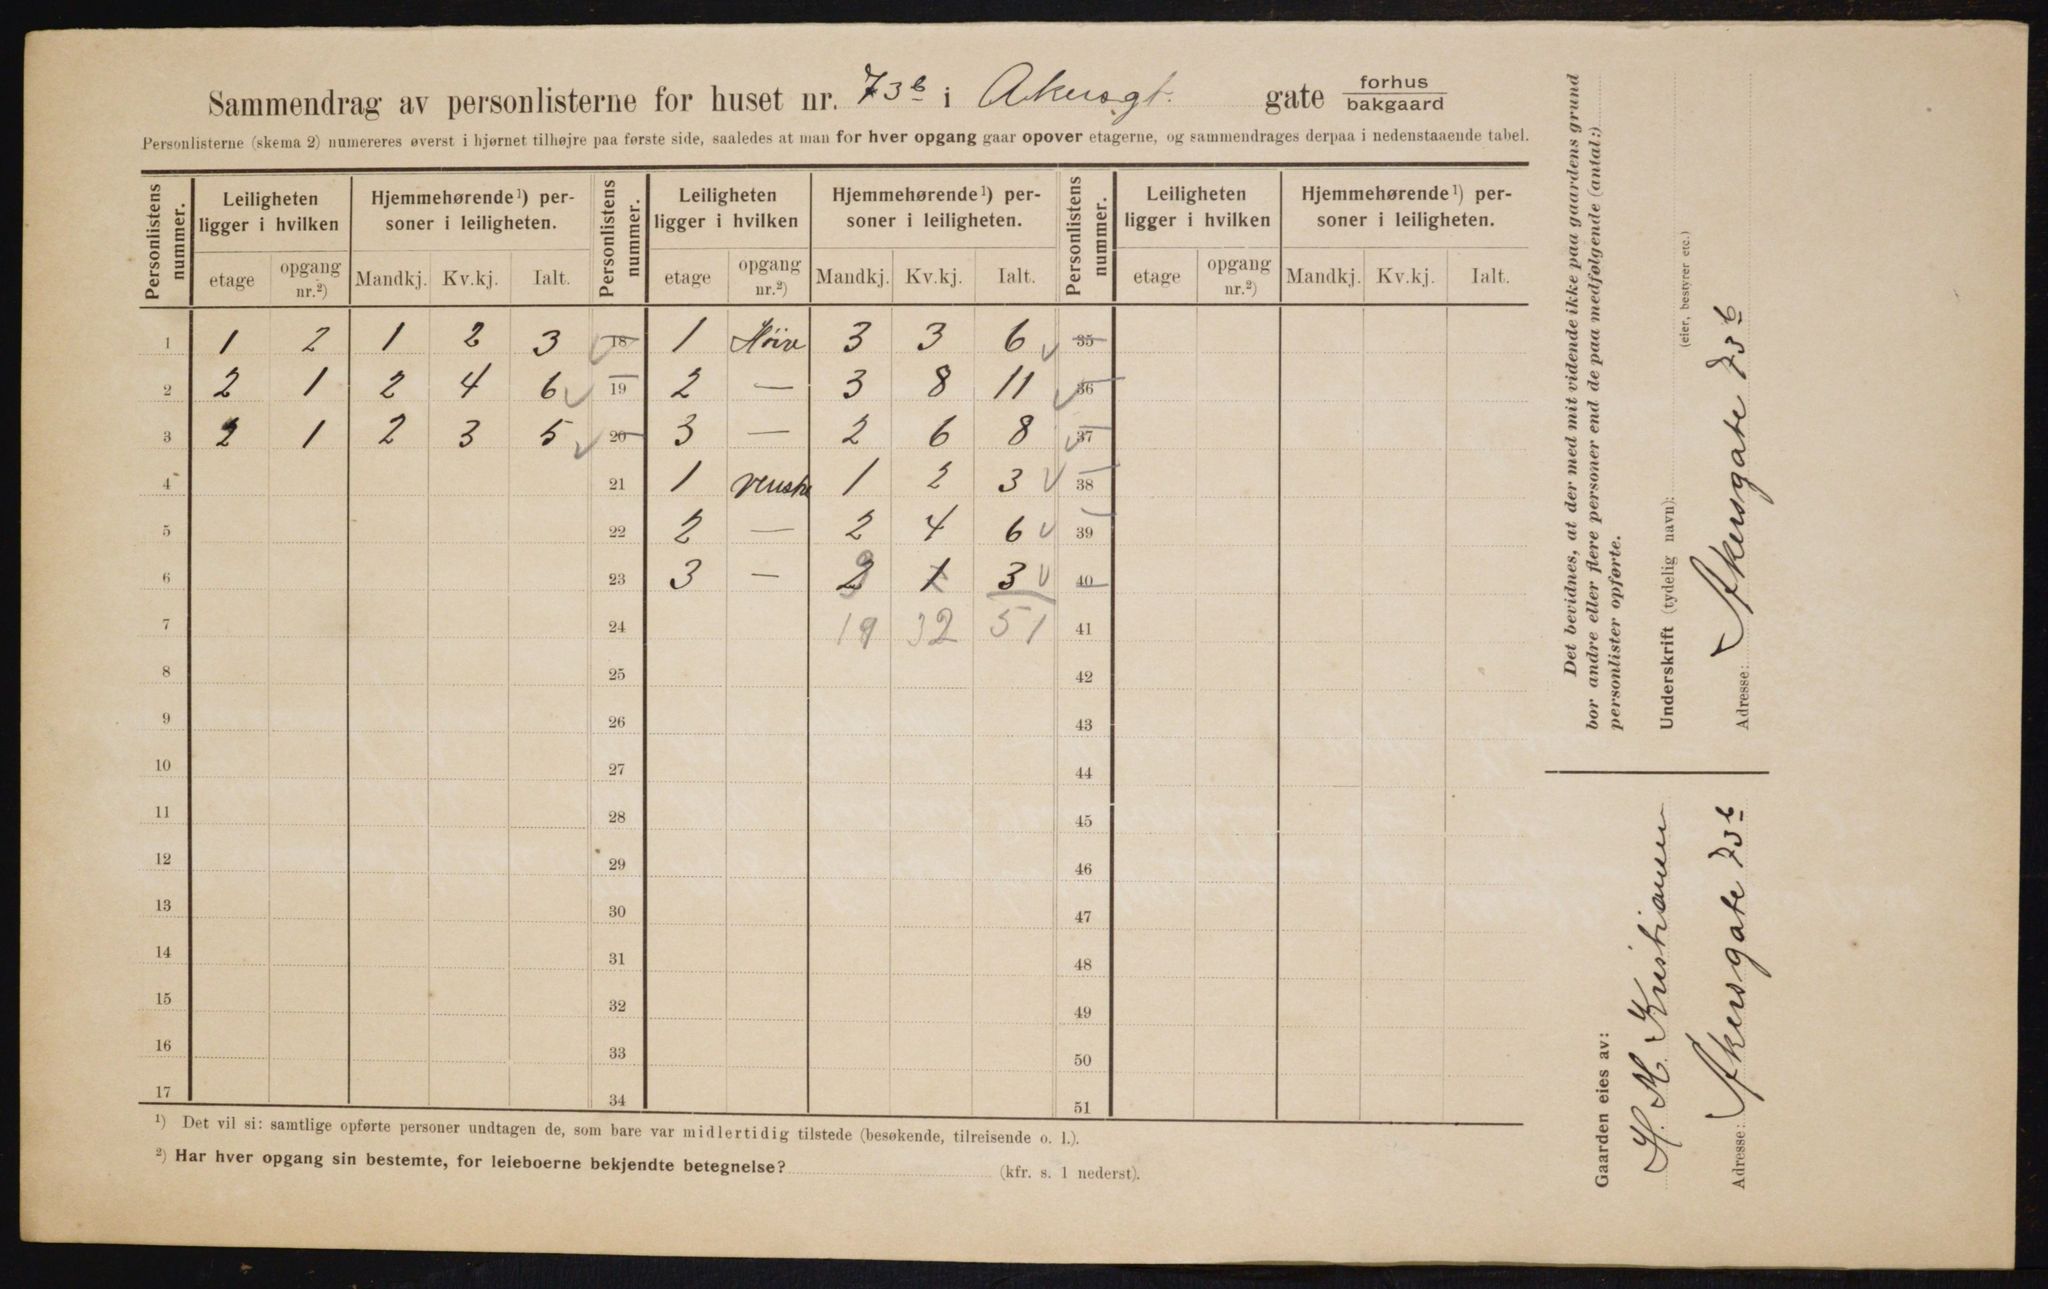 Sammendrag av personlisterne for huset nr. 73b i Akersgt. gate forhus / bakgaard
Personlisterne (skema 2) numereres øverst i hjørnet tilhøjre paa første side, saaledes at man for hver opgang gaar opover etagerne, og sammendrages derpaa i nedenstaaende tabel.
Personlistens nummer. | Leiligheten ligger i hvilken | Hjemmehørende¹) personer i leiligheten. | Personlistens nummer. | Leiligheten ligger i hvilken | Hjemmehørende¹) personer i leiligheten. | Personlistens nummer. | Leiligheten ligger i hvilken | Hjemmehørende¹) personer i leiligheten.
etage | opgang nr.²) | Mandkj. | Kv.kj. | Ialt. | etage | opgang nr.²) | Mandkj. | Kv.kj. | Ialt. | etage | opgang nr.²) | Mandkj. | Kv.kj. | Ialt.
1 | 1 | 2 | 1 | 2 | 3 | 18 | 1 | Høire | 3 | 3 | 6 | 35
2 | 2 | 1 | 2 | 4 | 6 | 19 | 2 | — | 3 | 8 | 11 | 36
3 | 2 | 1 | 2 | 3 | 5 | 20 | 3 | — | 2 | 6 | 8 | 37
4 | 21 | 1 | venstre | 1 | 2 | 3 | 38
5 | 22 | 2 | — | 2 | 4 | 6 | 39
6 | 23 | 3 | — | 3 | 3 | 40
7 | 24 | 19 | 32 | 51 | 41
8 | 25 | 42
9 | 26 | 43
10 | 27 | 44
11 | 28 | 45
12 | 29 | 46
13 | 30 | 47
14 | 31 | 48
15 | 32 | 49
16 | 33 | 50
17 | 34 | 51
¹) Det vil si: samtlige opførte personer undtagen de, som bare var midlertidig tilstede (besøkende, tilreisende o. l.).
²) Har hver opgang sin bestemte, for leieboerne bekjendte betegnelse? (kfr. s. 1 nederst).
Det bevidnes, at der med mit vidende ikke paa gaardens grund
bor andre eller flere personer end de paa medfølgende (antal:)
personlister opførte.
Underskrift (tydelig navn):
(eier, bestyrer etc.)
Adresse: Akersgate 73b
Gaarden eies av:
H. M. Kristiansen
Adresse: Akersgate 73b